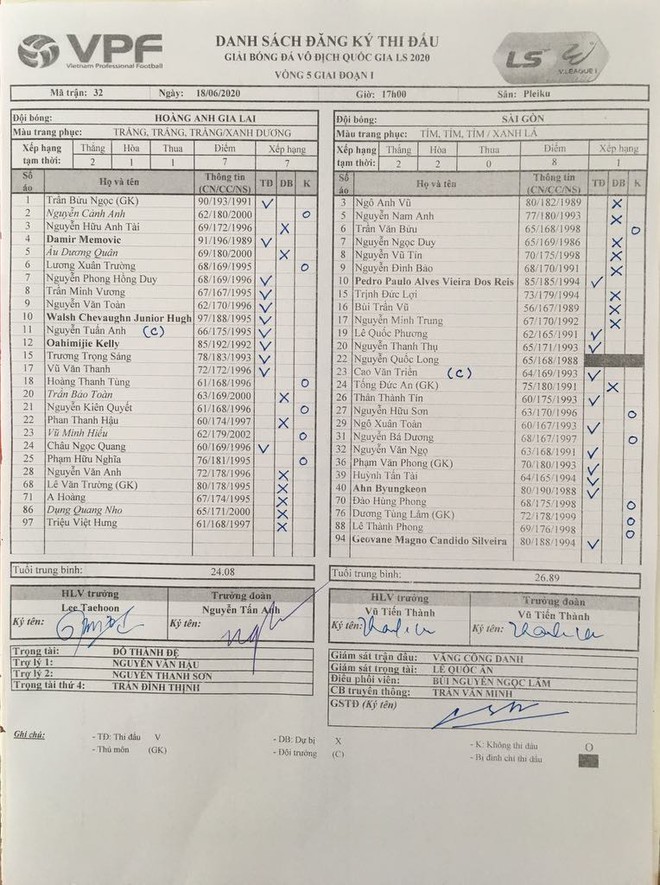 VPF
Vietnam Professional Football
DANH SÁCH ĐĂNG KÝ THI ĐẤU
GIẢI BÓNG ĐÁ VÔ ĐỊCH QUỐC GIA LS 2020
VÒNG 5 GIAI ĐOẠN I
LS
V.LEAGUE 1
Mã trận: 32 Ngày: 18/06/2020 Giờ: 17h00 Sân: Pleiku
Đội bóng: HOÀNG ANH GIA LAI
Màu trang phục: TRẮNG, TRẮNG, TRẮNG/XANH DƯƠNG
Xếp hạng tạm thời: Thắng Hòa Thua Điểm Xếp hạng
2 1 1 7 7
Số áo Họ và tên Thông tin (CN/CC/NS) TĐ DB K
1 Trần Bửu Ngọc (GK) 90/193/1991 V
2 Nguyễn Cảnh Anh 62/180/2000 O
3 Nguyễn Hữu Anh Tài 69/172/1996 X
4 Damir Memovic 91/196/1989 V
5 Âu Dương Quân 69/180/2000 X
6 Lương Xuân Trường 68/169/1995 O
7 Nguyễn Phong Hồng Duy 68/169/1996 V
8 Trần Minh Vương 67/167/1995 V
9 Nguyễn Văn Toàn 62/170/1996 V
10 Walsh Chevaughn Junior Hugh 97/188/1995 V
11 Nguyễn Tuấn Anh (C) 66/175/1995 V
12 Oahimijie Kelly 85/192/1992 V
15 Trương Trọng Sáng 78/183/1993 V
17 Vũ Văn Thanh 72/172/1996 V
18 Hoàng Thanh Tùng 61/168/1996 O
20 Trần Bảo Toàn 63/169/2000 X
21 Nguyễn Kiên Quyết 61/168/1996 O
22 Phan Thanh Hậu 60/174/1997 X
23 Vũ Minh Hiếu 62/179/2002 O
24 Châu Ngọc Quang 60/169/1996 V
25 Phạm Hữu Nghĩa 76/181/1995 O
28 Nguyễn Văn Anh 72/178/1996 X
68 Lê Văn Trường (GK) 80/178/1995 X
71 A Hoàng 67/174/1995 X
86 Dụng Quang Nho 65/171/2000 X
97 Triệu Việt Hưng 61/168/1997 X
Tuổi trung bình: 24.08
HLV trưởng Trưởng đoàn
Lee Taehoon Nguyễn Tấn Anh
Ký tên: Ký tên:
Trọng tài: ĐỖ THÀNH ĐỆ
Trợ lý 1: NGUYỄN VĂN HẬU
Trợ lý 2: NGUYỄN THANH SƠN
Trọng tài thứ 4: TRẦN ĐÌNH THỊNH
Đội bóng: SÀI GÒN
Màu trang phục: TÍM, TÍM, TÍM / XANH LÁ
Xếp hạng tạm thời: Thắng Hòa Thua Điểm Xếp hạng
2 2 0 8 1
Số áo Họ và tên Thông tin (CN/CC/NS) TĐ DB K
3 Ngô Anh Vũ 80/182/1989 X
5 Nguyễn Nam Anh 77/180/1993 X
6 Trần Văn Bửu 65/168/1998 O
7 Nguyễn Ngọc Duy 65/169/1986 X
8 Nguyễn Vũ Tín 70/175/1998 X
9 Nguyễn Đình Bảo 68/170/1991 X
10 Pedro Paulo Alves Vieira Dos Reis 85/185/1994 V
15 Trịnh Đức Lợi 73/179/1994 X
16 Bùi Trần Vũ 56/167/1989 X
17 Nguyễn Minh Trung 67/170/1992 X
19 Lê Quốc Phương 62/165/1991 V
20 Nguyễn Thanh Thụ 65/171/1993 V
22 Nguyễn Quốc Long 65/168/1988
23 Cao Văn Triền (C) 64/169/1993 V
24 Tống Đức An (GK) 75/180/1991 X
26 Thân Thành Tín 60/175/1993 V
27 Nguyễn Hữu Sơn 63/170/1996 O
29 Ngô Xuân Toàn 60/167/1993 V
31 Nguyễn Bá Dương 68/167/1997 O
32 Nguyễn Văn Ngọ 63/168/1991 V
36 Phạm Văn Phong (GK) 70/180/1993 V
39 Huỳnh Tấn Tài 64/165/1994 V
40 Ahn Byungkeon 80/190/1988 V
70 Đào Hùng Phong 68/175/1998 O
76 Dương Tùng Lâm (GK) 72/178/1999 O
88 Lê Thành Phong 69/176/1998 O
94 Geovane Magno Candido Silveira 80/188/1994 V
Tuổi trung bình: 26.89
HLV trưởng Trưởng đoàn
Vũ Tiến Thành Vũ Tiến Thành
Ký tên: Ký tên:
Giám sát trận đấu: VĂNG CÔNG DANH
Giám sát trọng tài: LÊ QUỐC ÂN
Điều phối viên: BÙI NGUYỄN NGỌC LÂM
CB truyền thông: TRẦN VĂN MINH
GSTĐ (Ký tên)
Ghi chú: - TĐ: Thi đấu V - DB: Dự bị X - K: Không thi đấu O
- Thủ môn (GK) - Đội trưởng (C) - Bị đình chỉ thi đấu